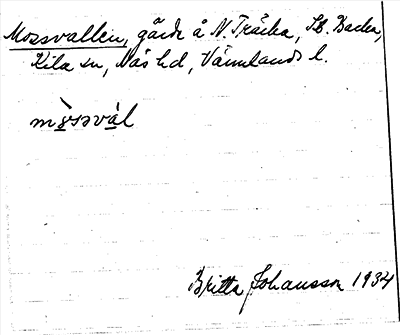 Mossvallen, gärde å N. Träcka, St. Backa,
Kila sn, Näs hd, Värmlands l.
mo̱ssva̱l
Britta Johansson 1934